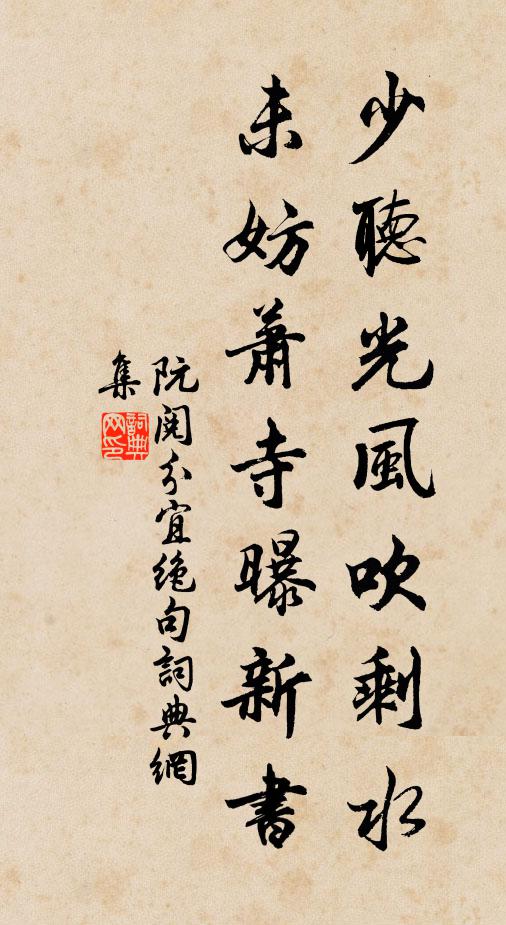 少聽光風吹剩水
未妨蕭寺曝新書
阮閱分宜絶句詞典網
集
詞典網印